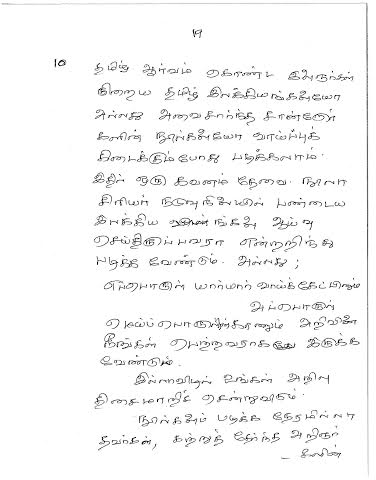 19
10 தமிழ் ஆர்வம் கொண்ட இவர்கள்
நிறைய தமிழ் இலக்கியங்களையோ
அல்லது அவை சார்ந்த சான்றோர்
களின் நூல்களையோ வாய்ப்புக்
கிடைக்கும்போது படிக்கலாம்.
இதில் ஒரு கவனம் தேவை. நூலா
சிரியர் நடுவுநிலையில் பண்டைய
இலக்கிய ஆய்வு
செய்திருப்பவரா என்றறிந்து
படித்த வேண்டும். அல்லது ;
எப்பொருள் யார்யார்வாய்க்கேட்பினும்
அப்பொருள்
மெய்ப்பொருள்காணும் அறிவினை
நீங்கள் பெற்றவராக இருக்க
வேண்டும்.
இல்லாவிடில் உங்கள் அறிவு
திசைமாறிச் சென்றுவிடும்.
நூல்களைப் படிக்க நேரமில்லா
தவர்கள், கற்றுத் தேர்ந்த அறிஞர்
- களின்